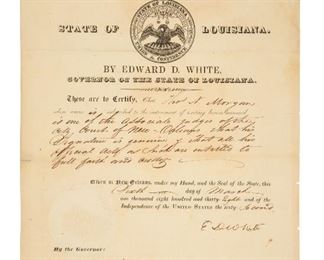 STATE OF LOUISIANA.
STATE OF LOUISIANA
UNION & CONFIDENCE
BY EDWARD D. WHITE,
GOVERNOR OF THE STATE OF LOUISIANA.
These are to Certify, That Thos N. Morgan
whose name is to the instrument of writing hereto annexed
is one of the associate judges of the
City Court of New Orleans that his
Signature is genuine & that all his
official acts as such are entitled to
full faith and credit
Given in New Orleans, under my Hand, and the Seal of the State, this
Sixth day of March
one thousand eight hundred and thirty Eight and of the
Independence of the UNITED STATES the sixty Second
E D White
By the Governor: